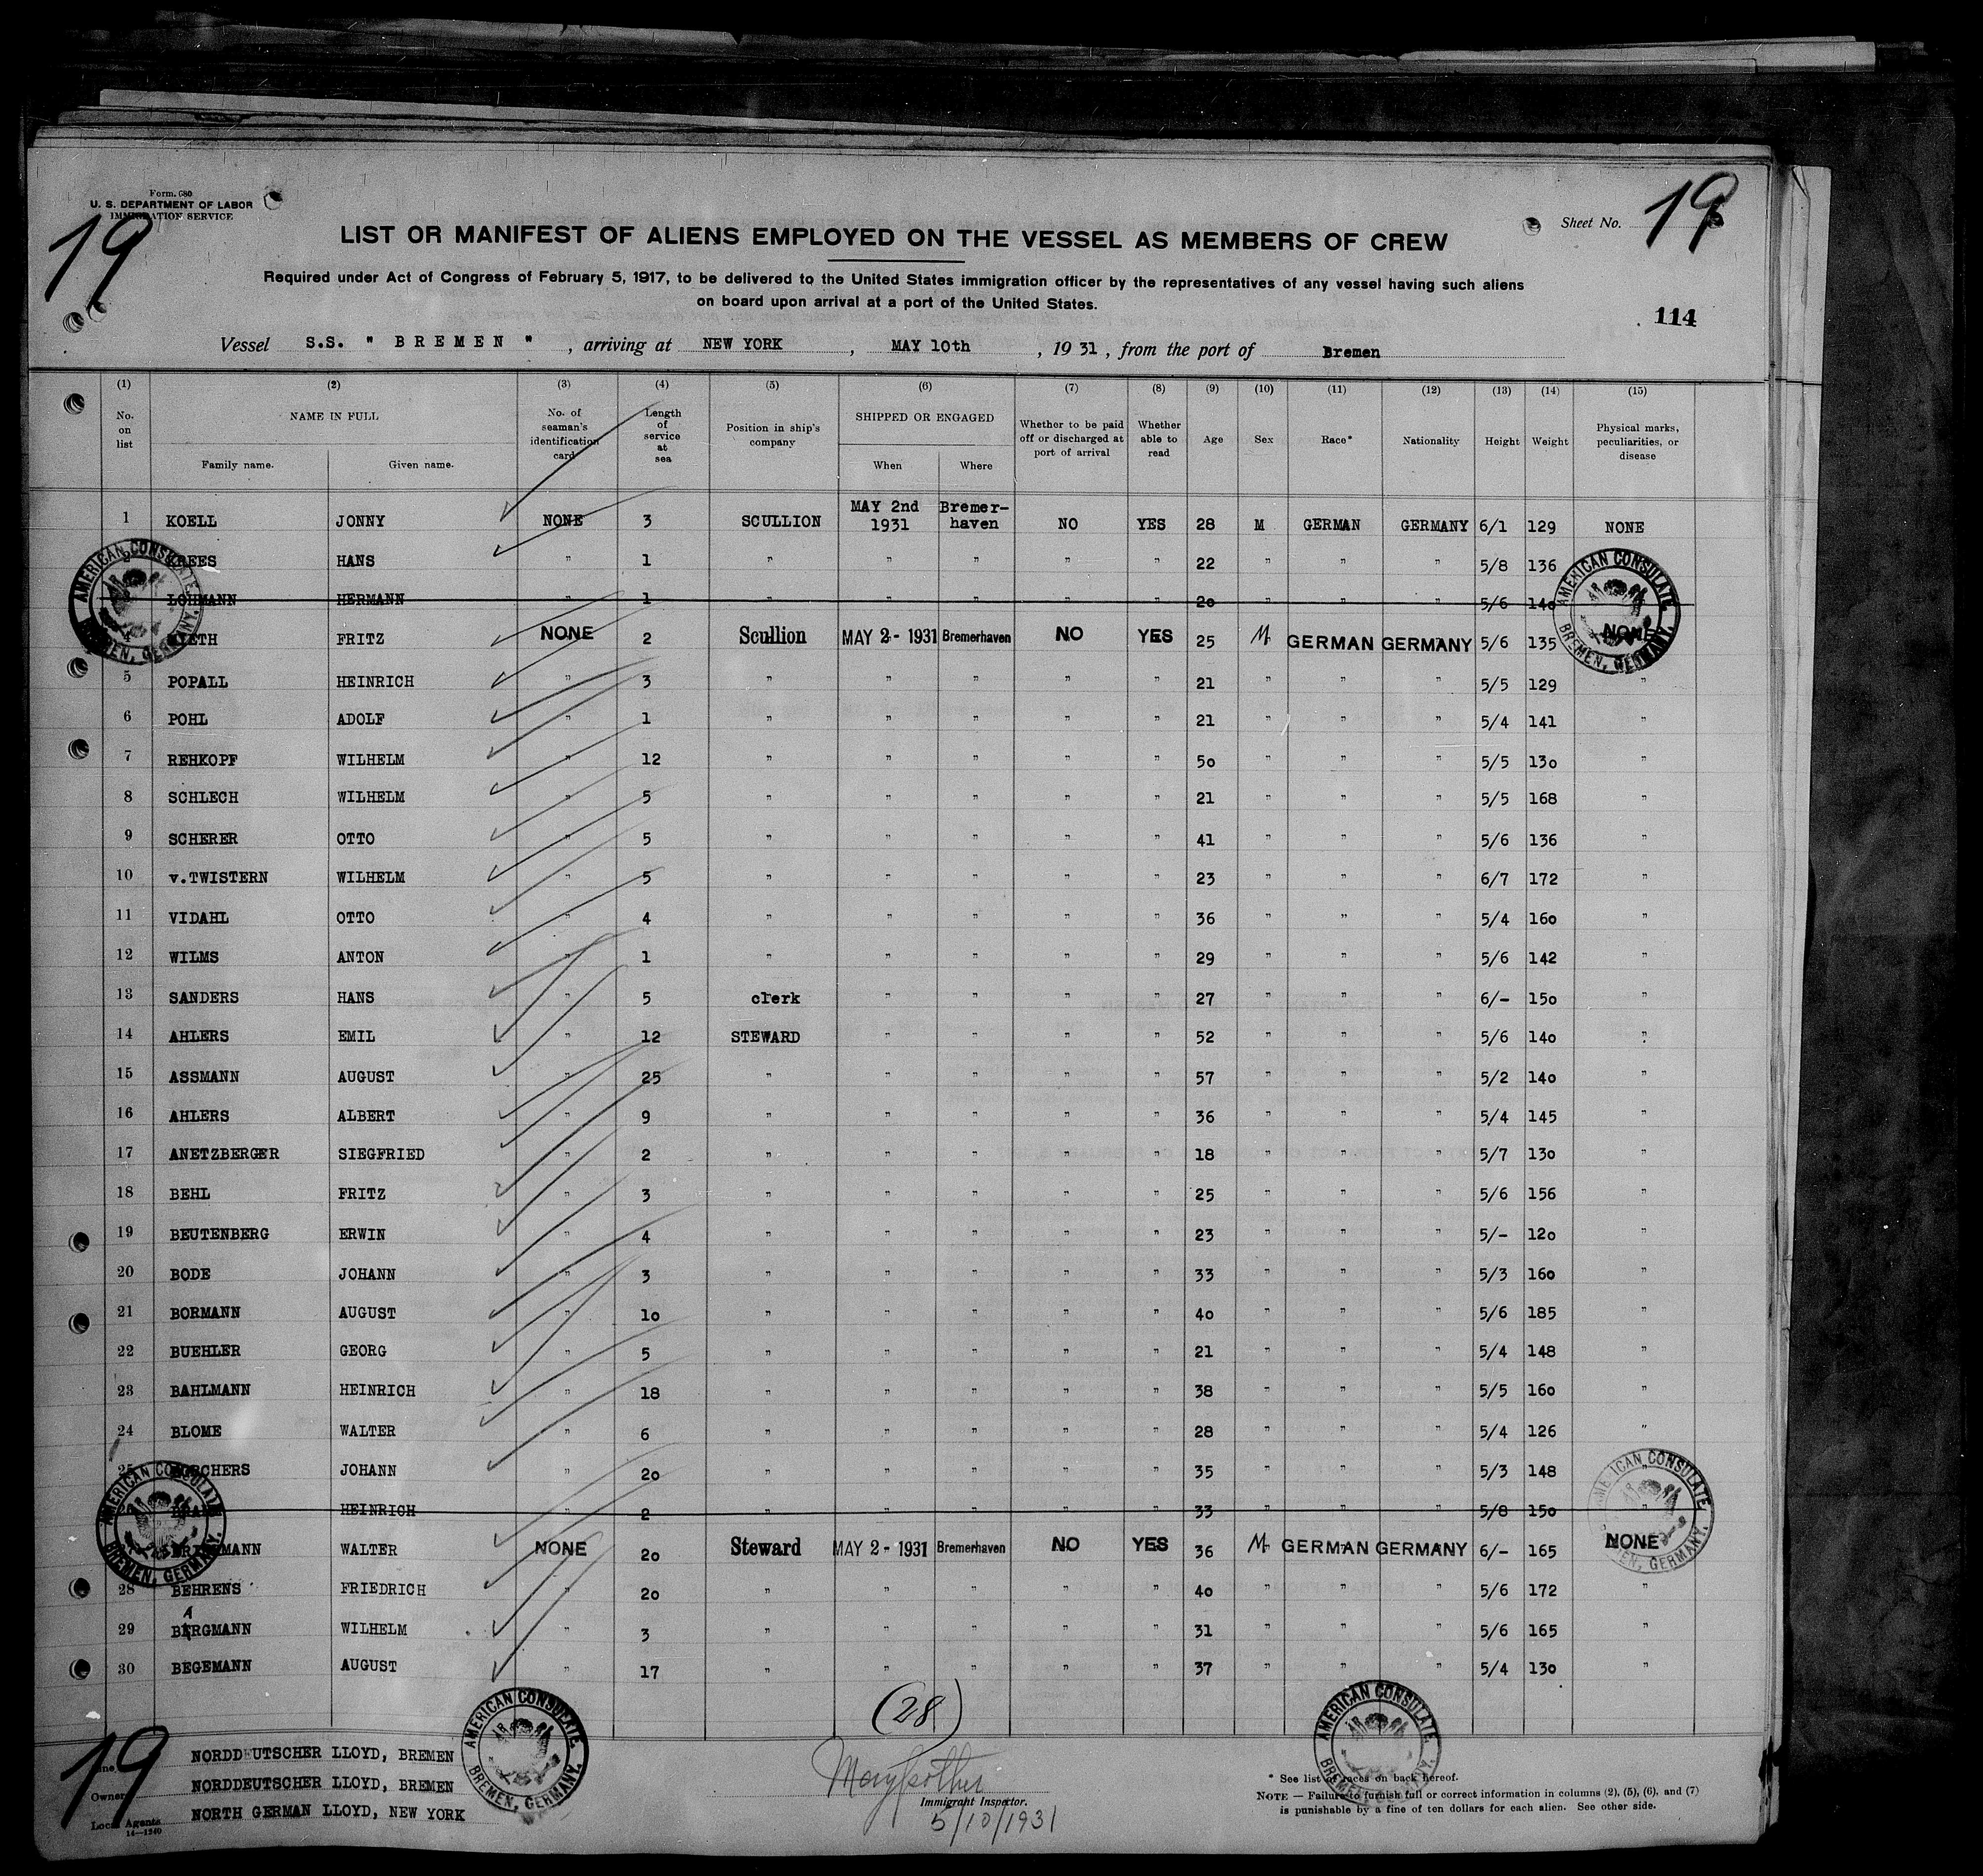 Form. 680
U. S. DEPARTMENT OF LABOR
IMMIGRATION SERVICE
19
Sheet No. 19
LIST OR MANIFEST OF ALIENS EMPLOYED ON THE VESSEL AS MEMBERS OF CREW
Required under Act of Congress of February 5, 1917, to be delivered to the United States immigration officer by the representatives of any vessel having such aliens
on board upon arrival at a port of the United States.
114
Vessel S.S. " BREMEN " , arriving at NEW YORK , MAY 10th , 1931 , from the port of Bremen
(1) (2) (3) (4) (5) (6) (7) (8) (9) (10) (11) (12) (13) (14) (15)
No. on list NAME IN FULL Family name. Given name. No. of seaman's identification card Length of service at sea Position in ship's company SHIPPED OR ENGAGED When Where Whether to be paid off or discharged at port of arrival Whether able to read Age Sex Race* Nationality Height Weight Physical marks, peculiarities, or disease
1 KOELL JONNY NONE 3 SCULLION MAY 2nd 1931 Bremer-haven NO YES 28 M GERMAN GERMANY 6/1 129 NONE
2 KREES HANS " 1 " " " " " 22 " " " 5/8 136
LOHMANN HERMANN " 1 " " " " " 20 " " " 5/6 140
4 FRITZ NONE 2 Scullion MAY 2 - 1931 Bremerhaven NO YES 25 M GERMAN GERMANY 5/6 135 NONE
5 POPALL HEINRICH " 3 " " " " " 21 " " " 5/5 129 "
6 POHL ADOLF " 1 " " " " " 21 " " " 5/4 141 "
7 REHKOPF WILHELM " 12 " " " " " 50 " " " 5/5 130 "
8 SCHLECH WILHELM " 5 " " " " " 21 " " " 5/5 168 "
9 SCHERER OTTO " 5 " " " " " 41 " " " 5/6 136 "
10 v.TWISTERN WILHELM " 5 " " " " " 23 " " " 6/7 172 "
11 VIDAHL OTTO " 4 " " " " " 36 " " " 5/4 160 "
12 WILMS ANTON " 1 " " " " " 29 " " " 5/6 142 "
13 SANDERS HANS " 5 clerk " " " " 27 " " " 6/- 150 "
14 AHLERS EMIL " 12 STEWARD " " " " 52 " " " 5/6 140 "
15 ASSMANN AUGUST " 25 " " " " " 57 " " " 5/2 140 "
16 AHLERS ALBERT " 9 " " " " " 36 " " " 5/4 145 "
17 ANETZBERGER SIEGFRIED " 2 " " " " " 18 " " " 5/7 130 "
18 BEHL FRITZ " 3 " " " " " 25 " " " 5/6 156 "
19 BEUTENBERG ERWIN " 4 " " " " " 23 " " " 5/- 120 "
20 BODE JOHANN " 3 " " " " " 33 " " " 5/3 160 "
21 BORMANN AUGUST " 10 " " " " " 40 " " " 5/6 185 "
22 BUEHLER GEORG " 5 " " " " " 21 " " " 5/4 148 "
23 BAHLMANN HEINRICH " 18 " " " " " 38 " " " 5/5 160 "
24 BLOME WALTER " 6 " " " " " 28 " " " 5/4 126 "
25 BORCHERS JOHANN " 20 " " " " " 35 " " " 5/3 148 "
HEINRICH " 2 " " " " " 33 " " " 5/8 150 "
WALTER NONE 20 Steward MAY 2 - 1931 Bremerhaven NO YES 36 M GERMAN GERMANY 6/- 165 NONE
28 BEHRENS FRIEDRICH " 20 " " " " " 40 " " " 5/6 172 "
29 BARGMANN WILHELM " 3 " " " " " 31 " " " 5/6 165 "
30 BEGEMANN AUGUST " 17 " " " " " 37 " " " 5/4 130 "
AMERICAN CONSULATE. BREMEN, GERMANY.
AMERICAN CONSULATE. BREMEN, GERMANY.
AMERICAN CONSULATE. BREMEN, GERMANY.
AMERICAN CONSULATE. BREMEN, GERMANY.
AMERICAN CONSULATE. BREMEN, GERMANY.
AMERICAN CONSULATE. BREMEN, GERMANY.
(28)
19
NORDDEUTSCHER LLOYD, BREMEN
Owner NORDDEUTSCHER LLOYD, BREMEN
Local Agents NORTH GERMAN LLOYD, NEW YORK
14—1240
Immigrant Inspector.
5/10/1931
* See list of races on back hereof.
NOTE — Failure to furnish full or correct information in columns (2), (5), (6), and (7)
is punishable by a fine of ten dollars for each alien. See other side.